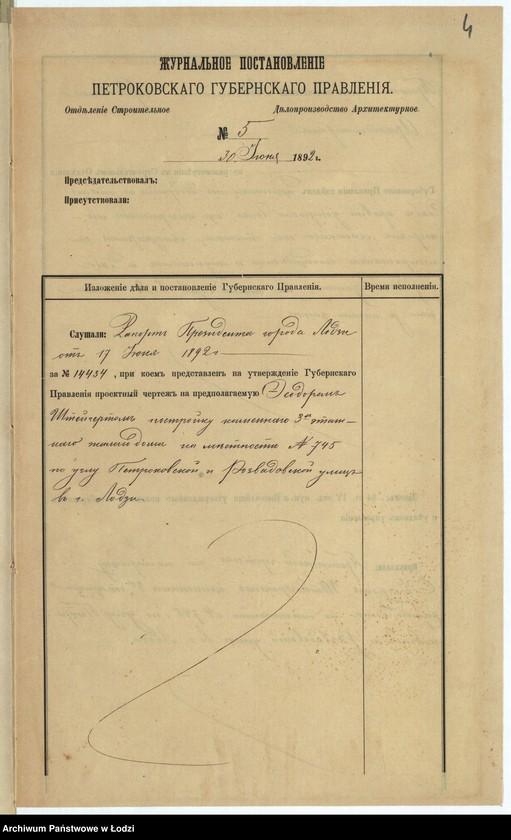 4
ЖУРНАЛЬНОЕ ПОСТАНОВЛЕНІЕ
ПЕТРОКОВСКАГО ГУБЕРНСКАГО ПРАВЛЕНІЯ.
Отдѣленіе Строительное Дѣлопроизводство Архитектурное
№ 5
30 Іюня 1892 г.
Предсѣдательствовалъ:
Присутствовали:
Изложеніе дѣла и постановленіе Губернскаго Правленія. Время исполненія.
Слушали: Рапортъ Президента города Лодзи
отъ 17 Іюня 1892 г
за № 14434, при коемъ представленъ на утвержденіе Губернскаго
Правленія проектный чертежъ на предполагаемую Теодоромъ
Штейгертомъ постройку каменнаго 3хъ этаж-
наго жилаго дома на мѣстности № 745
по углу Петроковской и Розвадовской улицъ
въ г. Лодзи.
Archiwum Państwowe w Łodzi